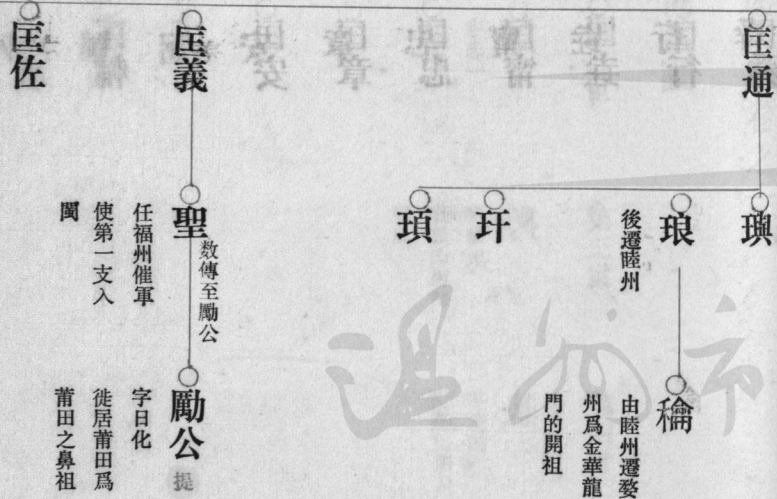 匡通
璵
琅
後遷睦州
穐
由睦州遷婺
州爲金華龍
門的開祖
玕
頊
匡義
聖
任福州催軍
使第一支入
閩
数傳至勵公
勵公
提
字日化
徙居莆田爲
莆田之鼻祖
匡佐
温州市